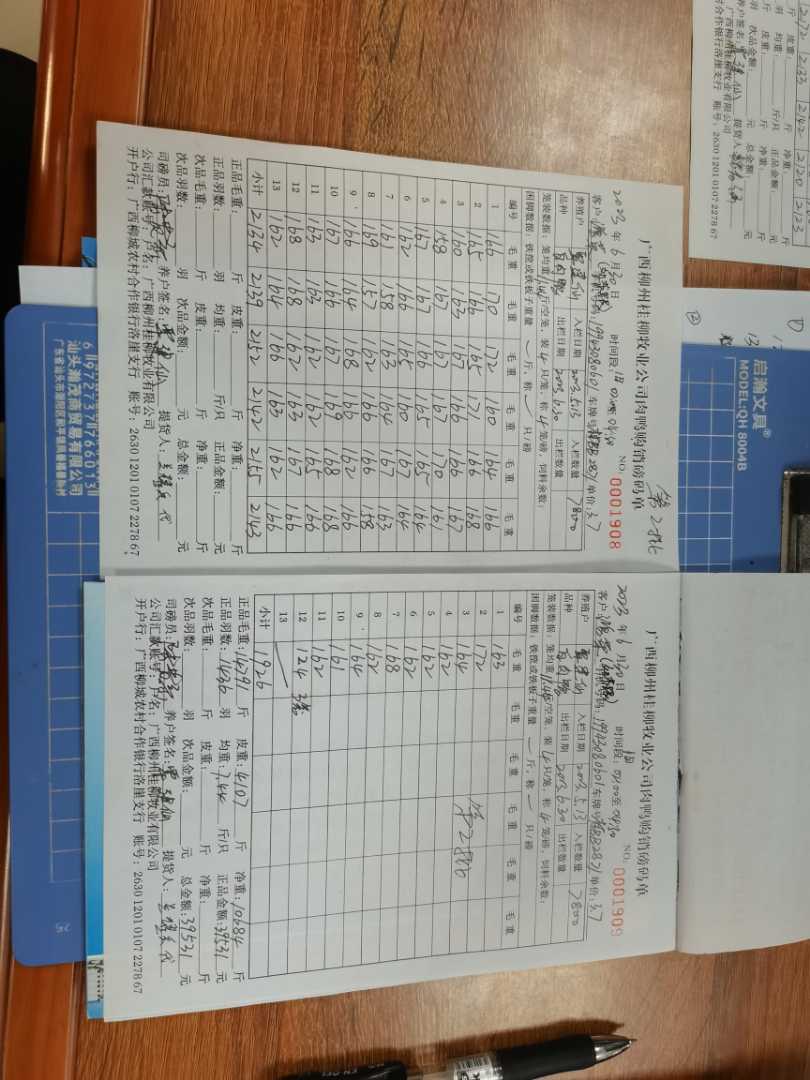 广西柳州桂柳牧业公司肉鸭购销磅码单
第2批
2023年6月30日
NO: 0001908
单价: 3.7
养殖户
入栏日期 2023.5.13 入栏数量 7800
品种 出栏日期 2023.6.30 出栏数量
笼装数据: 笼均重11.41斤/空笼,装4只/笼,称4笼/磅,饲料余数:
困脚数据:铁筐或铁板子重量 一 斤,称 一 只/磅
编号 毛重 毛重 毛重 毛重 毛重 毛重
1 166 170 172 160 164 166
2 165 166 165 171 166 168
3 160 163 167 166 166 167
4 158 167 167 167 170 161
5 167 167 166 165 165 164
6 162 166 165 160 167 164
7 161 158 163 164 167 163
8 169 157 162 166 166 158
9 166 164 168 166 162 166
10 167 166 167 169 168 168
11 163 163 162 162 165 166
12 168 168 162 163 167 166
13 162 164 166 163 162 166
小计 2134 2139 2152 2142 2155 2143
正品毛重: 斤 皮重: 斤 净重: 斤
正品羽数: 羽 均重: 斤/只 正品金额: 元
次品毛重: 斤 皮重: 斤 净重: 斤
次品羽数: 羽 次品金额: 元 总金额: 元
司磅员: 养户签名: 提货人:
公司汇款账号:户名:广西柳州桂柳牧业有限公司
开户行:广西柳城农村合作银行洛崖支行 账号:2630 1201 0107 2278 67
广西柳州桂柳牧业公司肉鸭购销磅码单
2023年6月30日
NO: 0001909
单价: 3.7
养殖户
入栏日期 2023.5.13 入栏数量 7800
品种 出栏日期 2023.6.30 出栏数量
笼装数据: 笼均重11.41斤/空笼,装4只/笼,称4笼/磅,饲料余数:
困脚数据:铁筐或铁板子重量 一 斤,称 一 只/磅
编号 毛重 毛重 毛重 毛重 毛重 毛重
1 163
2 172
3 164
4 162
5 162
6 162
7 168
8 162
9 164
10 161
11 162
12 124 3笼
13
小计 1926
第2批
正品毛重: 14791 斤 皮重: 4107 斤 净重: 10684 斤
正品羽数: 1436 羽 均重: 7.44 斤/只 正品金额: 39531 元
次品毛重: 斤 皮重: 斤 净重: 斤
次品羽数: 羽 次品金额: 元 总金额: 39531 元
司磅员: 养户签名: 提货人:
公司汇款账号:户名:广西柳州桂柳牧业有限公司
开户行:广西柳城农村合作银行洛崖支行 账号:2630 1201 0107 2278 67
启瀚文具®
MODEL:QH 8004B
6 972737 766033
汕头瀚茂商贸易有限公司
2172 2133 2142 2120 2123
账号: 2630 1201 0107 2278 67